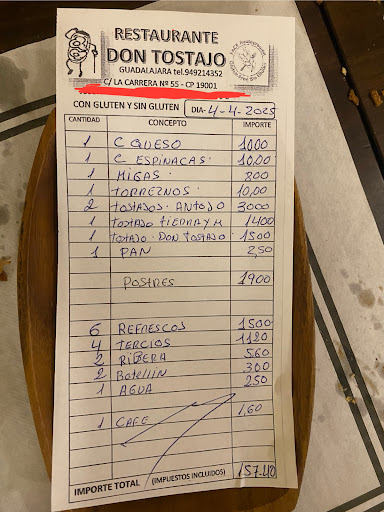 RESTAURANTE
DON TOSTAJO
GUADALAJARA tel.949214352
C/ LA CARRERA Nº 55 - CP 19001
CON GLUTEN Y SIN GLUTEN DIA- 4-4-2025
CANTIDAD CONCEPTO IMPORTE
1 C QUESO 1000
1 C ESPINACAS. 10,00
1 MIGAS. 800
1 TORREZNOS. 10,00
2 TOSTADOS. ANTOJO 3000
1 TOSTADO TIERRA Y M 1400
1 TOSTADO. DON TOSTAJO. 1500
1 PAN 2,50
POSTRES 1900
6 REFRESCOS 1500
4 TERCIOS 1120
2 RIBERA 560
2 Botellin 300
1 AGUA 250
1 CAFE 1,60
IMPORTE TOTAL (IMPUESTOS INCLUIDOS) 157.40